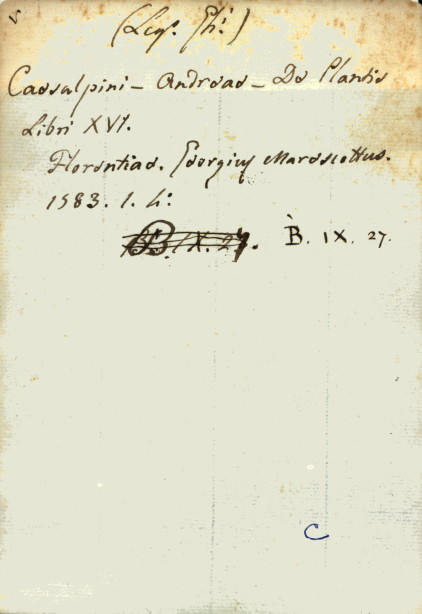 v
(Leg. Ph:)
Caesalpini - Andreae - De Plantis
Libri XVI.
Florentiae. Georgius Marescottus.
1583. 1. 4:
B. IX. 27. B. IX. 27.
C